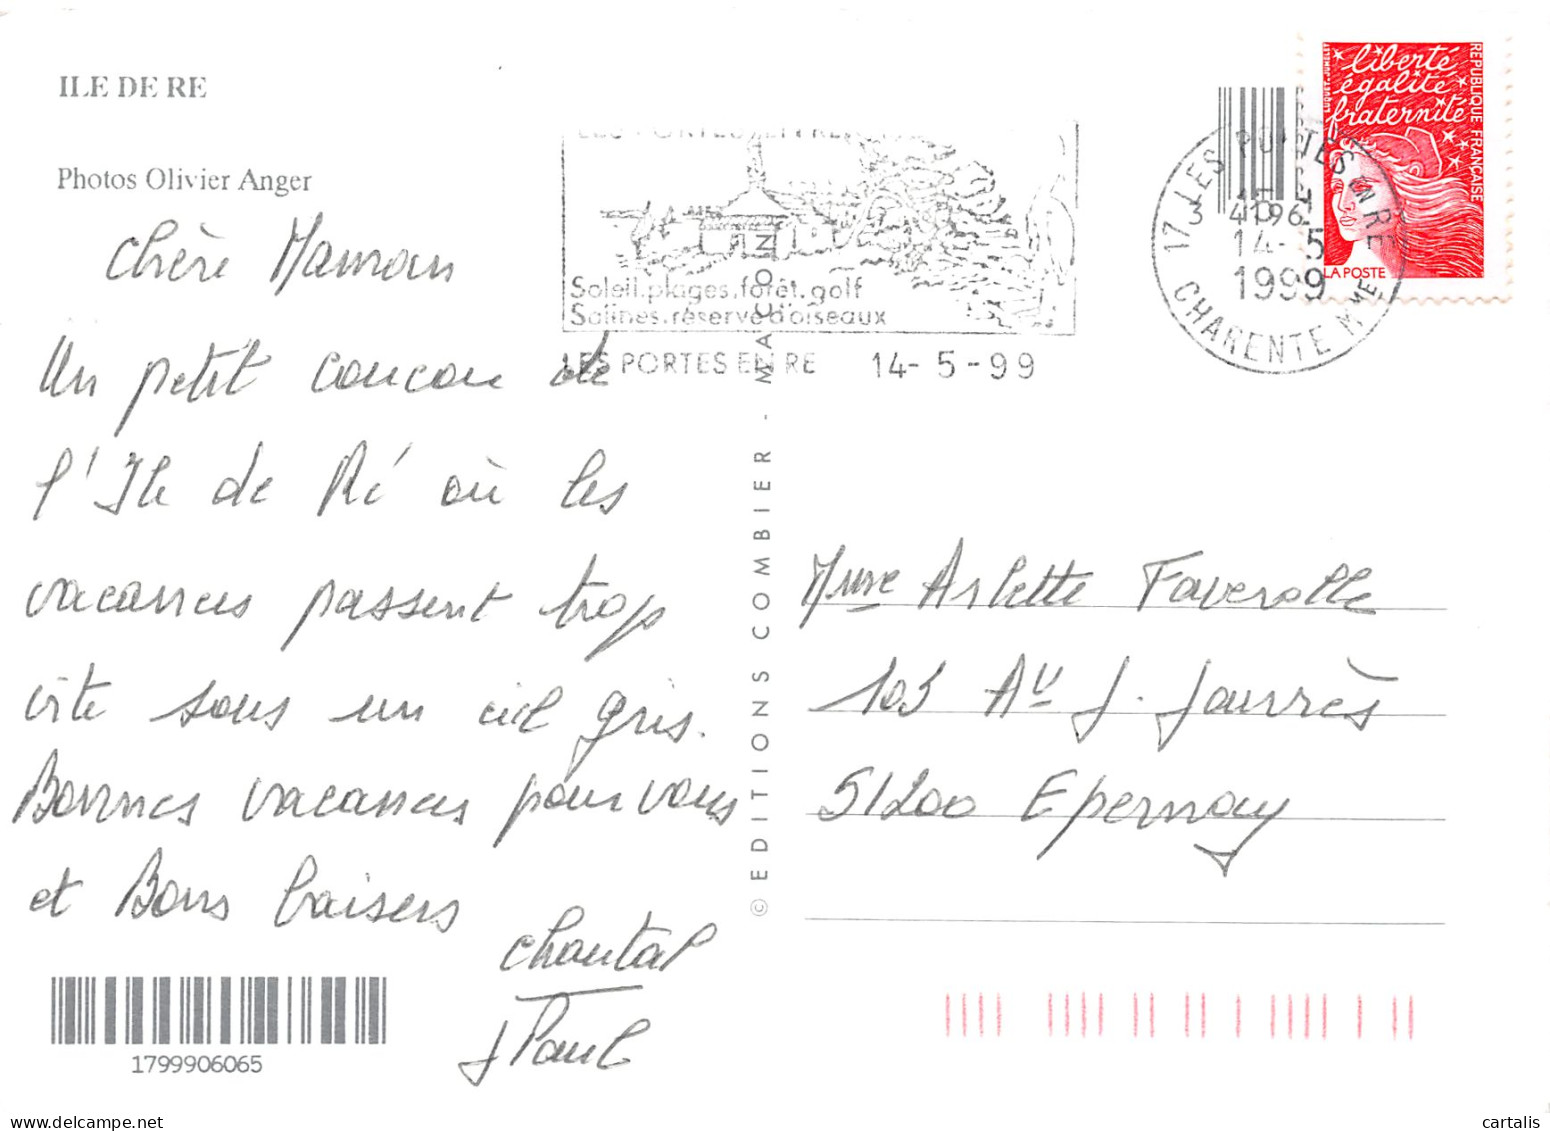 ILE DE RE
Photos Olivier Anger
Chère Maman
Un petit coucou de
l'Ile de Ré où les
vacances passent trop
vite sous un ciel gris.
Bonnes vacances pour vous
et Bons baisers
Chantal
J Paul
1799906065
Soleil.plages.forêt.golf
Salines.réserve d'oiseaux
LES PORTES EN RE 14-5-99
© EDITIONS COMBIER - MACON
17 LES PORTES EN RE
14-5
1999
CHARENTE Mme
liberté
égalité
fraternité
REPUBLIQUE FRANÇAISE
LA POSTE
Mme Arlette Faverolle
103 Av J. Jaurrès
51200 Epernay
www.delcampe.net
cartalis